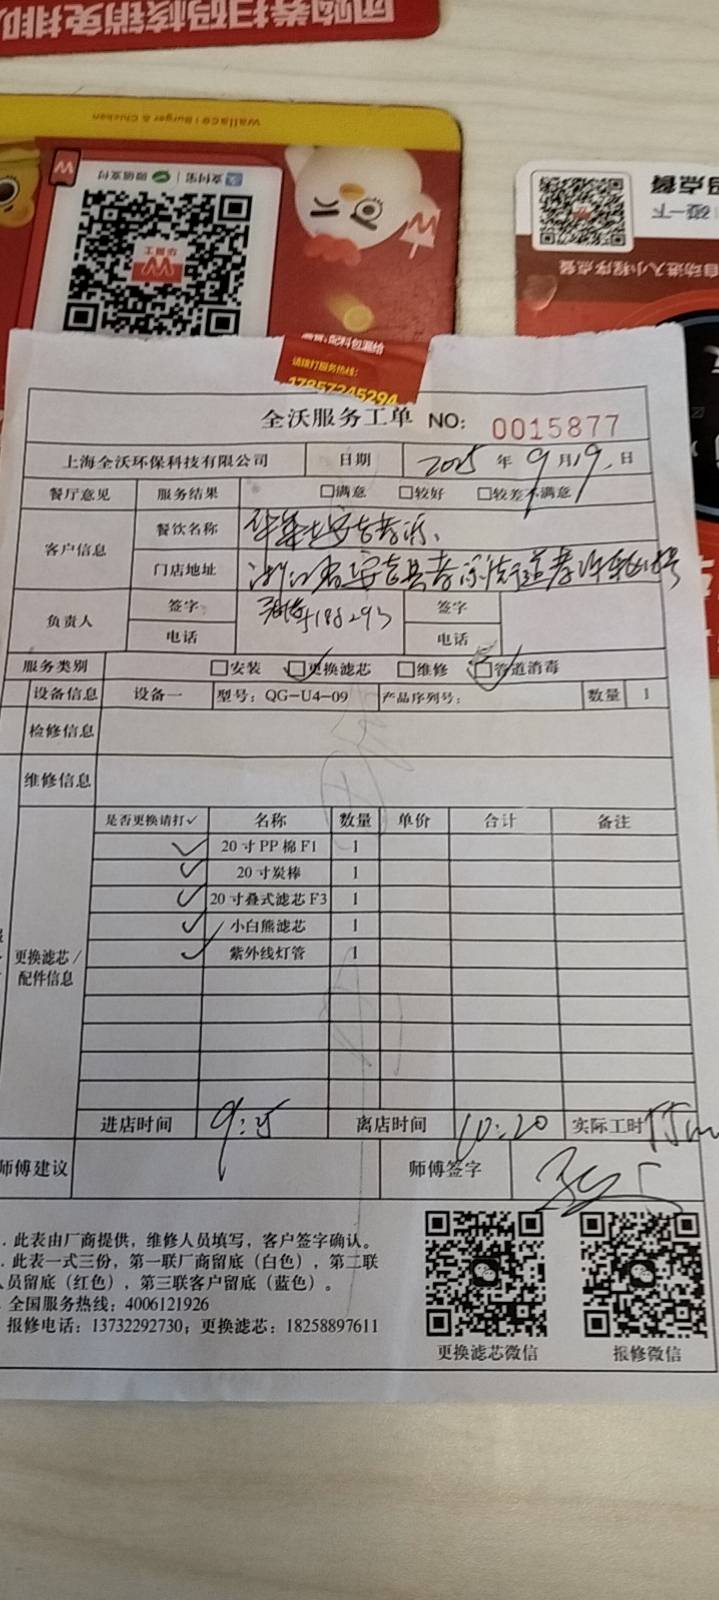 团购券扫码核销免排队
Wallace | Burger & Chicken
支付宝 | 微信支付
华莱士
点餐
碰一下
自动进入小程序点餐
请拨打服务热线:
17857245294
全沃服务工单 NO: 0015877
上海全沃环保科技有限公司 日期 2025 年 9 月 19 日
餐厅意见 服务结果 □满意 □较好 □较差不满意
客户信息 餐饮名称 华莱士安吉孝源
门店地址 浙江省安吉县孝源街道孝源
负责人 签字 签字
电话 188293 电话
服务类别 □安装 ☑更换滤芯 □维修 ☑管道消毒
设备信息 设备一 型号: QG-U4-09 产品序列号: 数量 1
检修信息
维修信息
更换滤芯/配件信息 是否更换请打✓ 名称 数量 单价 合计 备注
✓ 20寸PP棉F1 1
✓ 20寸炭棒 1
✓ 20寸叠式滤芯F3 1
✓ 小白熊滤芯 1
✓ 紫外线灯管 1
进店时间 9:25 离店时间 10:20 实际工时 55m
师傅建议 师傅签字
. 此表由厂商提供，维修人员填写，客户签字确认。
. 此表一式三份，第一联厂商留底（白色），第二联
人员留底（红色），第三联客户留底（蓝色）。
全国服务热线：4006121926
报修电话：13732292730；更换滤芯：18258897611
更换滤芯微信 报修微信